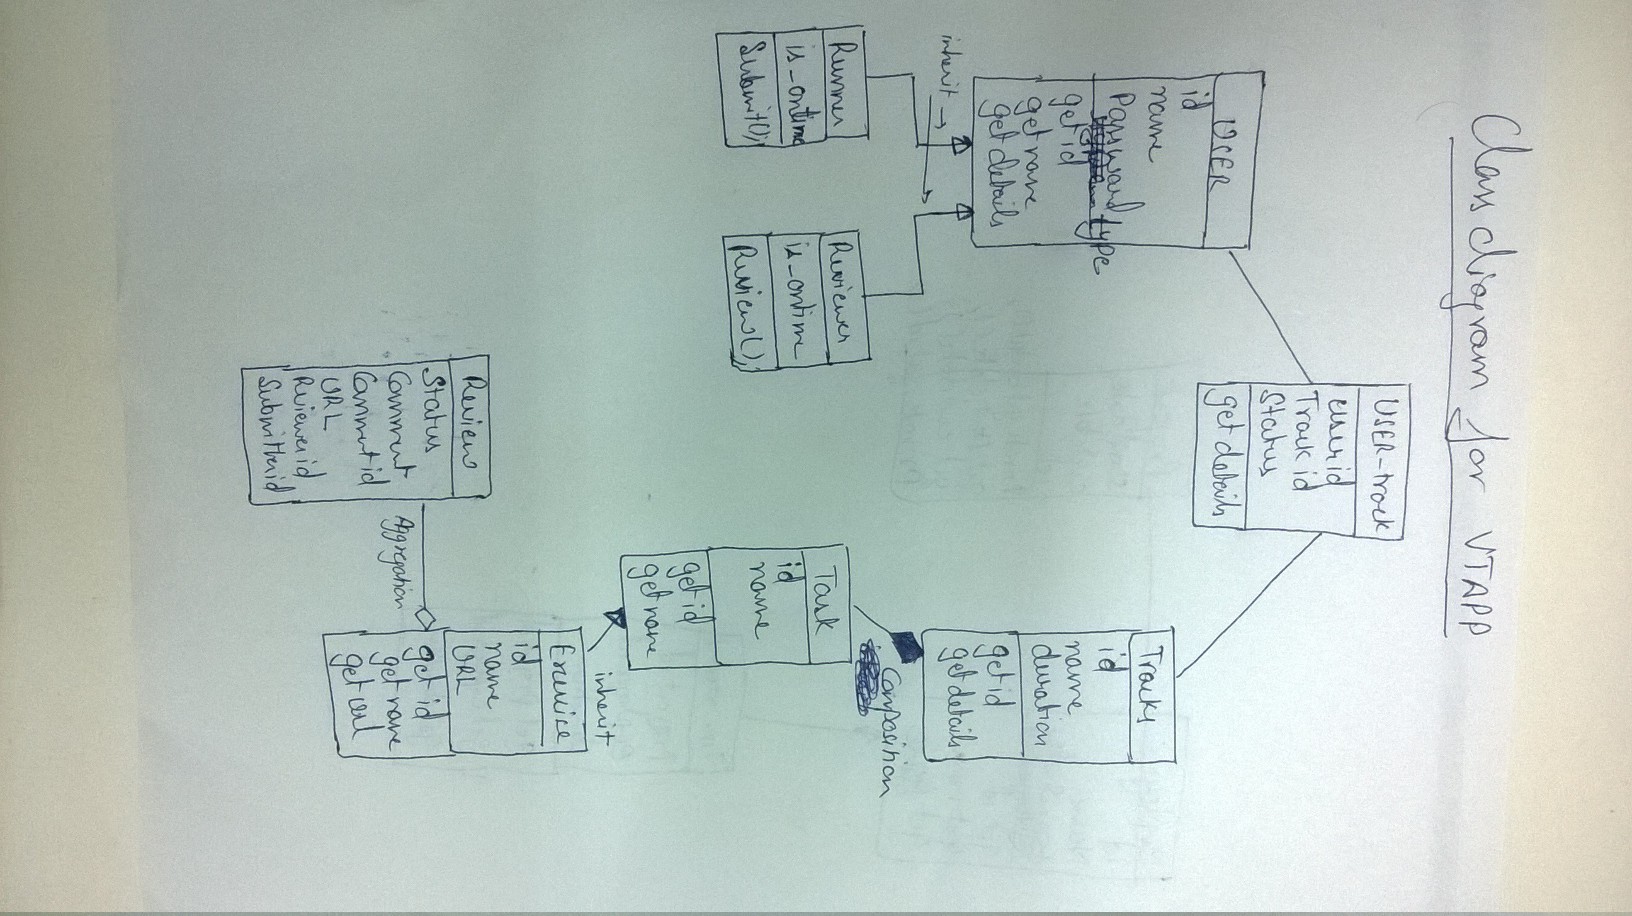 Class diagram for VTAPP
USER
id
name
Password type
get id
get name
get details
inherit
Runner
is_ontime
Submit();
Reviewer
is_ontime
Review();
USER-track
user id
Track id
Status
get details
Tracks
id
name
duration
get id
get details
Composition
Task
id
name
get id
get name
inherit
Exercise
id
name
URL
get id
get name
get url
Aggregation
Review
Status
Comment
Comment id
URL
Reviewer id
Submitter id